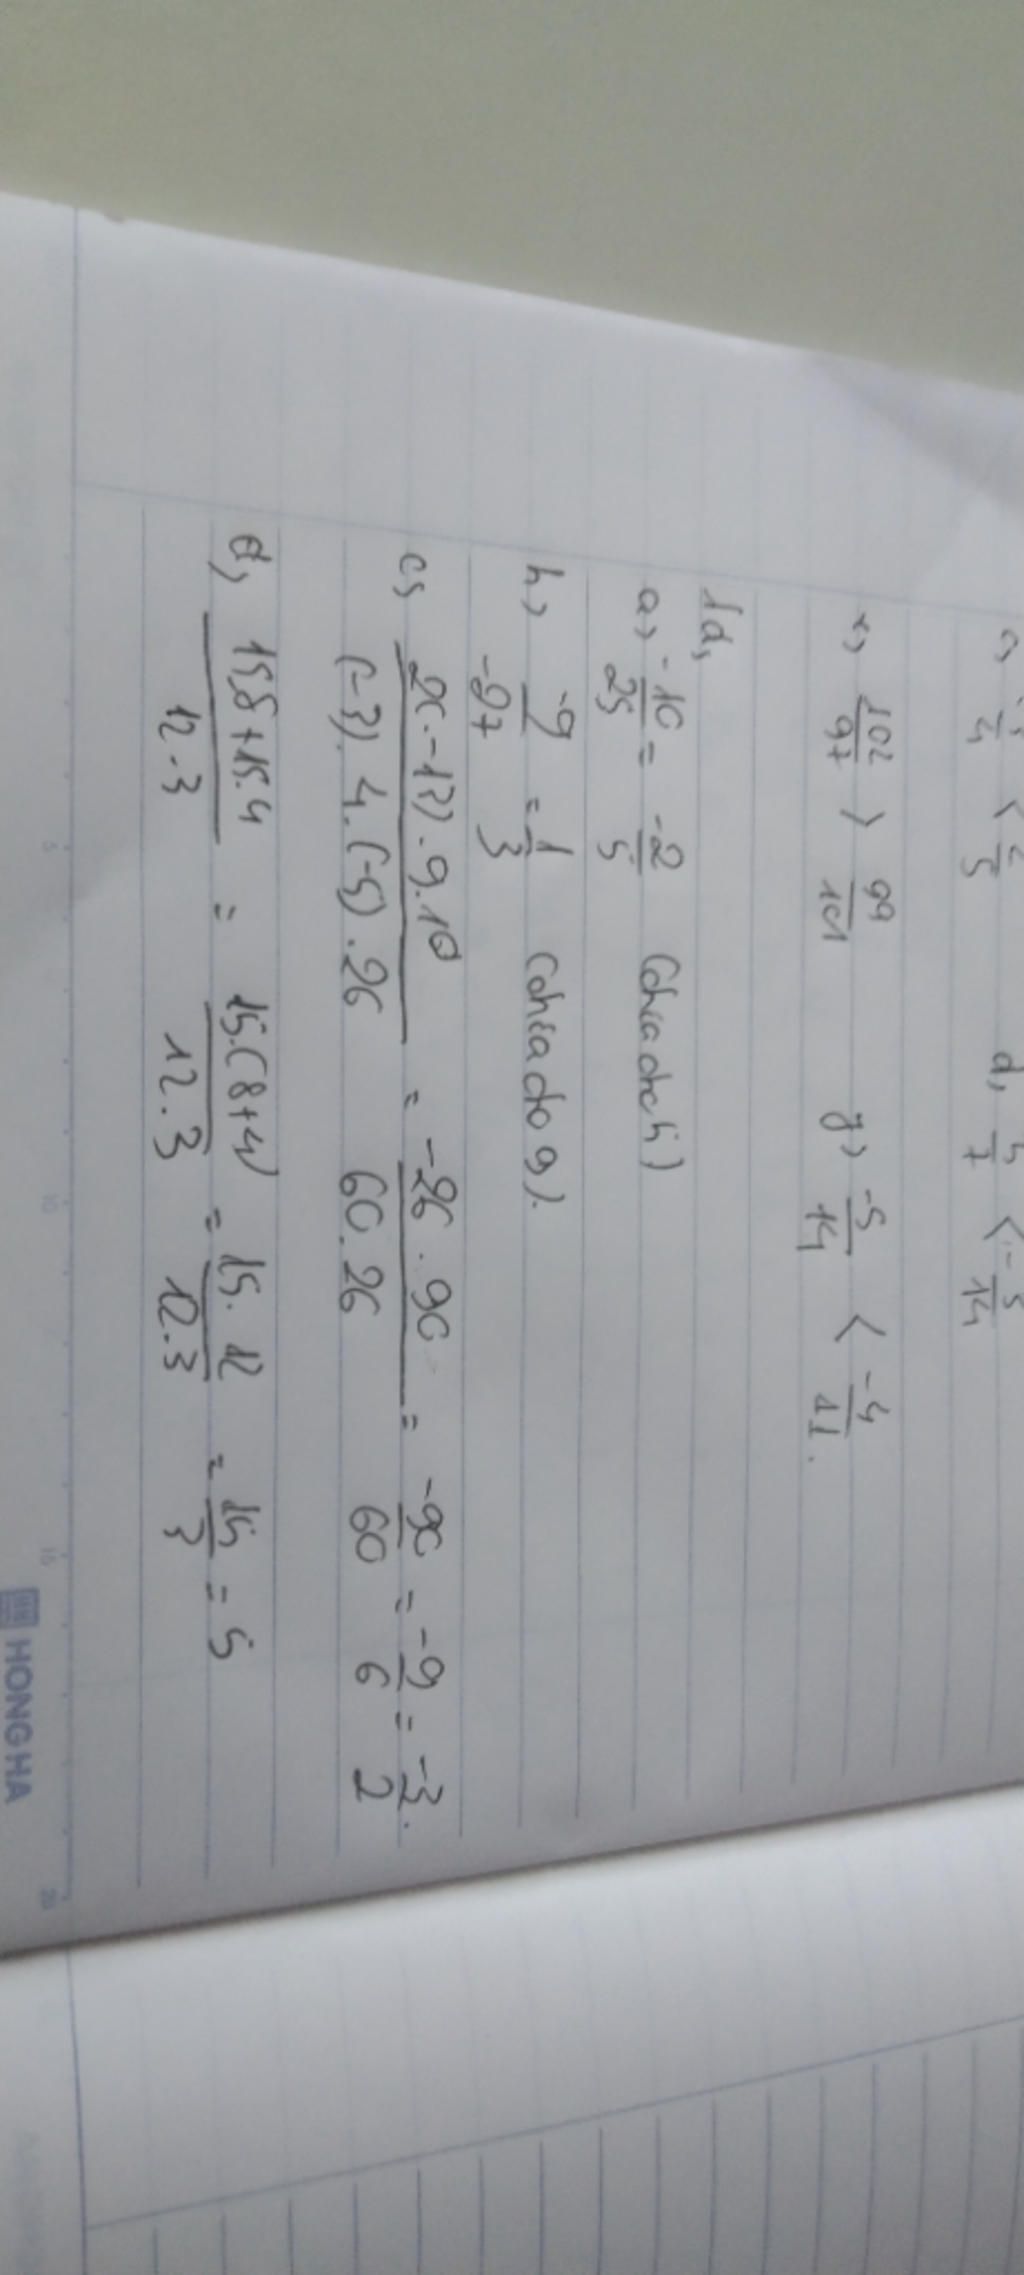 c, < 5 d, 5/7 < -5/14
e, 102/97 > 99/101 g, -5/14 < -4/11.
1d,
a, -10/25 = -2/5 (chia cho 5)
b, -9/-27 = 1/3 (chia cho 9).
c, 2.(-13).9.10/(-3).4.(-5).26 = -26.90/60.26 = -90/60 = -9/6 = -3/2.
d, 15.8+15.4/12.3 = 15.(8+4)/12.3 = 15.12/12.3 = 15/3 = 5
5 10 15 20
HONG HA